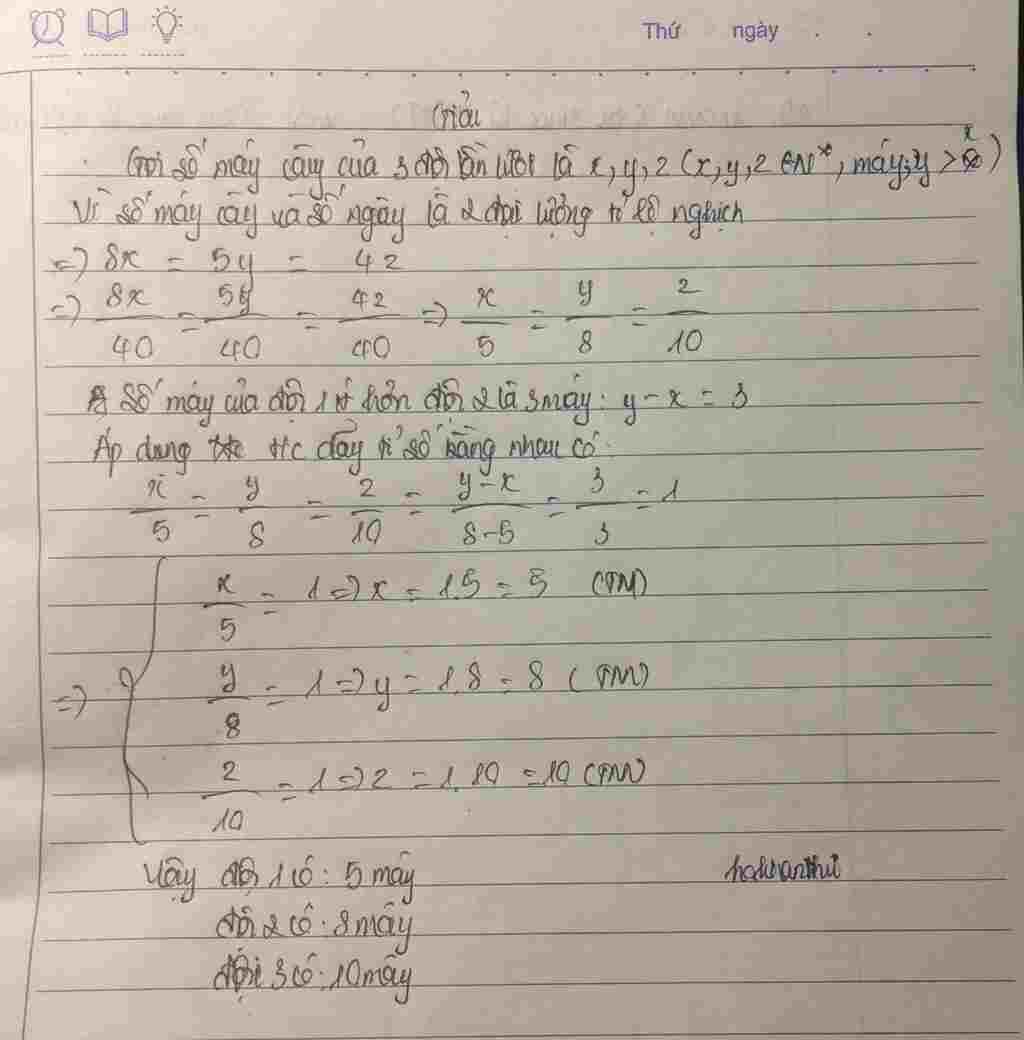 Thứ ngày . .
Giải
Gọi số máy cày của 3 đội lần lượt là x, y, z (x, y, z ∈ N*, máy, y > x)
Vì số máy cày và số ngày là 2 đại lượng tỉ lệ nghịch
=> 8x = 5y = 4z
=> 8x/40 = 5y/40 = 4z/40 => x/5 = y/8 = z/10
Số máy của đội 1 ít hơn đội 2 là 3 máy: y - x = 3
Áp dụng t/c dãy tỉ số bằng nhau có:
x/5 = y/8 = z/10 = y-x/8-5 = 3/3 = 1
x/5 = 1 => x = 1.5 = 5 (TM)
=> y/8 = 1 => y = 1.8 = 8 (TM)
z/10 = 1 => z = 1.10 = 10 (TM)
Vậy đội 1 có: 5 máy
đội 2 có: 8 máy
đội 3 có: 10 máy